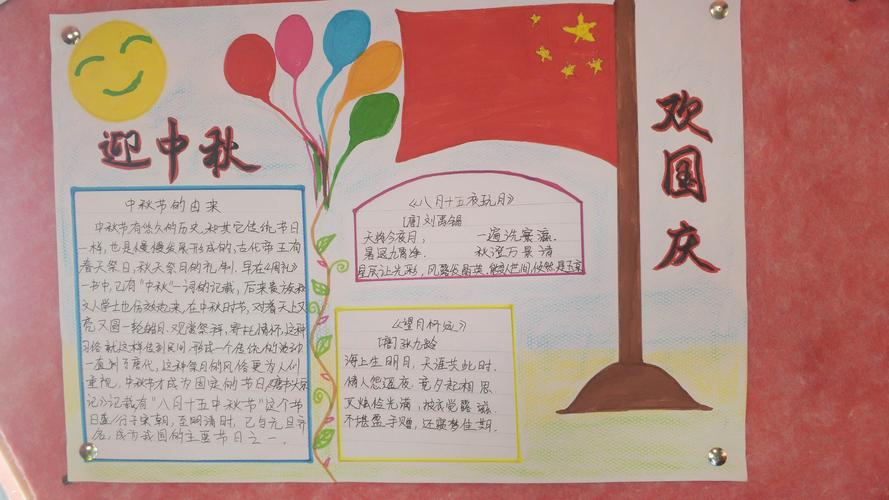 迎中秋
欢国庆
中秋节的由来
中秋节有悠久的历史,和其它传统节日
一样,也是慢慢发展形成的,古代帝王有
春天祭日,秋天祭月的礼制,早在《周礼》
一书中,已有"中秋"一词的记载,后来贵族和
文人学士也仿效起来,在中秋时节,对着天上又
亮又圆一轮皓月,观赏祭拜,寄托情怀,这种
习俗就这样传到民间,形成一个传统的活动
一直到了唐代,这种祭月的风俗更为人们
重视,中秋节才成为固定的节日,《唐书太宗
记》记载有"八月十五中秋节"这个节
日盛行于宋朝,至明清时,已与元旦齐
名,成为我国的主要节日之一.
《八月十五夜玩月》
[唐]刘禹锡
天将今夜月, 一遍洗寰瀛.
暑退九霄净. 秋澄万景清
星辰让光彩,风露发晶英.能变人世间,倏然是玉京
《望月怀远》
[唐]张九龄
海上生明月,天涯共此时.
情人怨遥夜.竟夕起相思
灭烛怜光满,披衣觉露滋.
不堪盈手赠,还寝梦佳期.